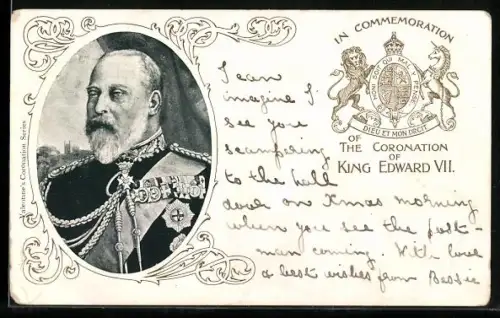 IN COMMEMORATION
HONI SOIT QUI MAL Y PENSE
DIEU ET MON DROIT
OF THE CORONATION
OF
KING EDWARD VII.
Valentine's Coronation Series
I can
imagine I
see you
scampering
to the hall
door on Xmas morning
when you see the post-
man coming. With love
& best wishes from Bessie